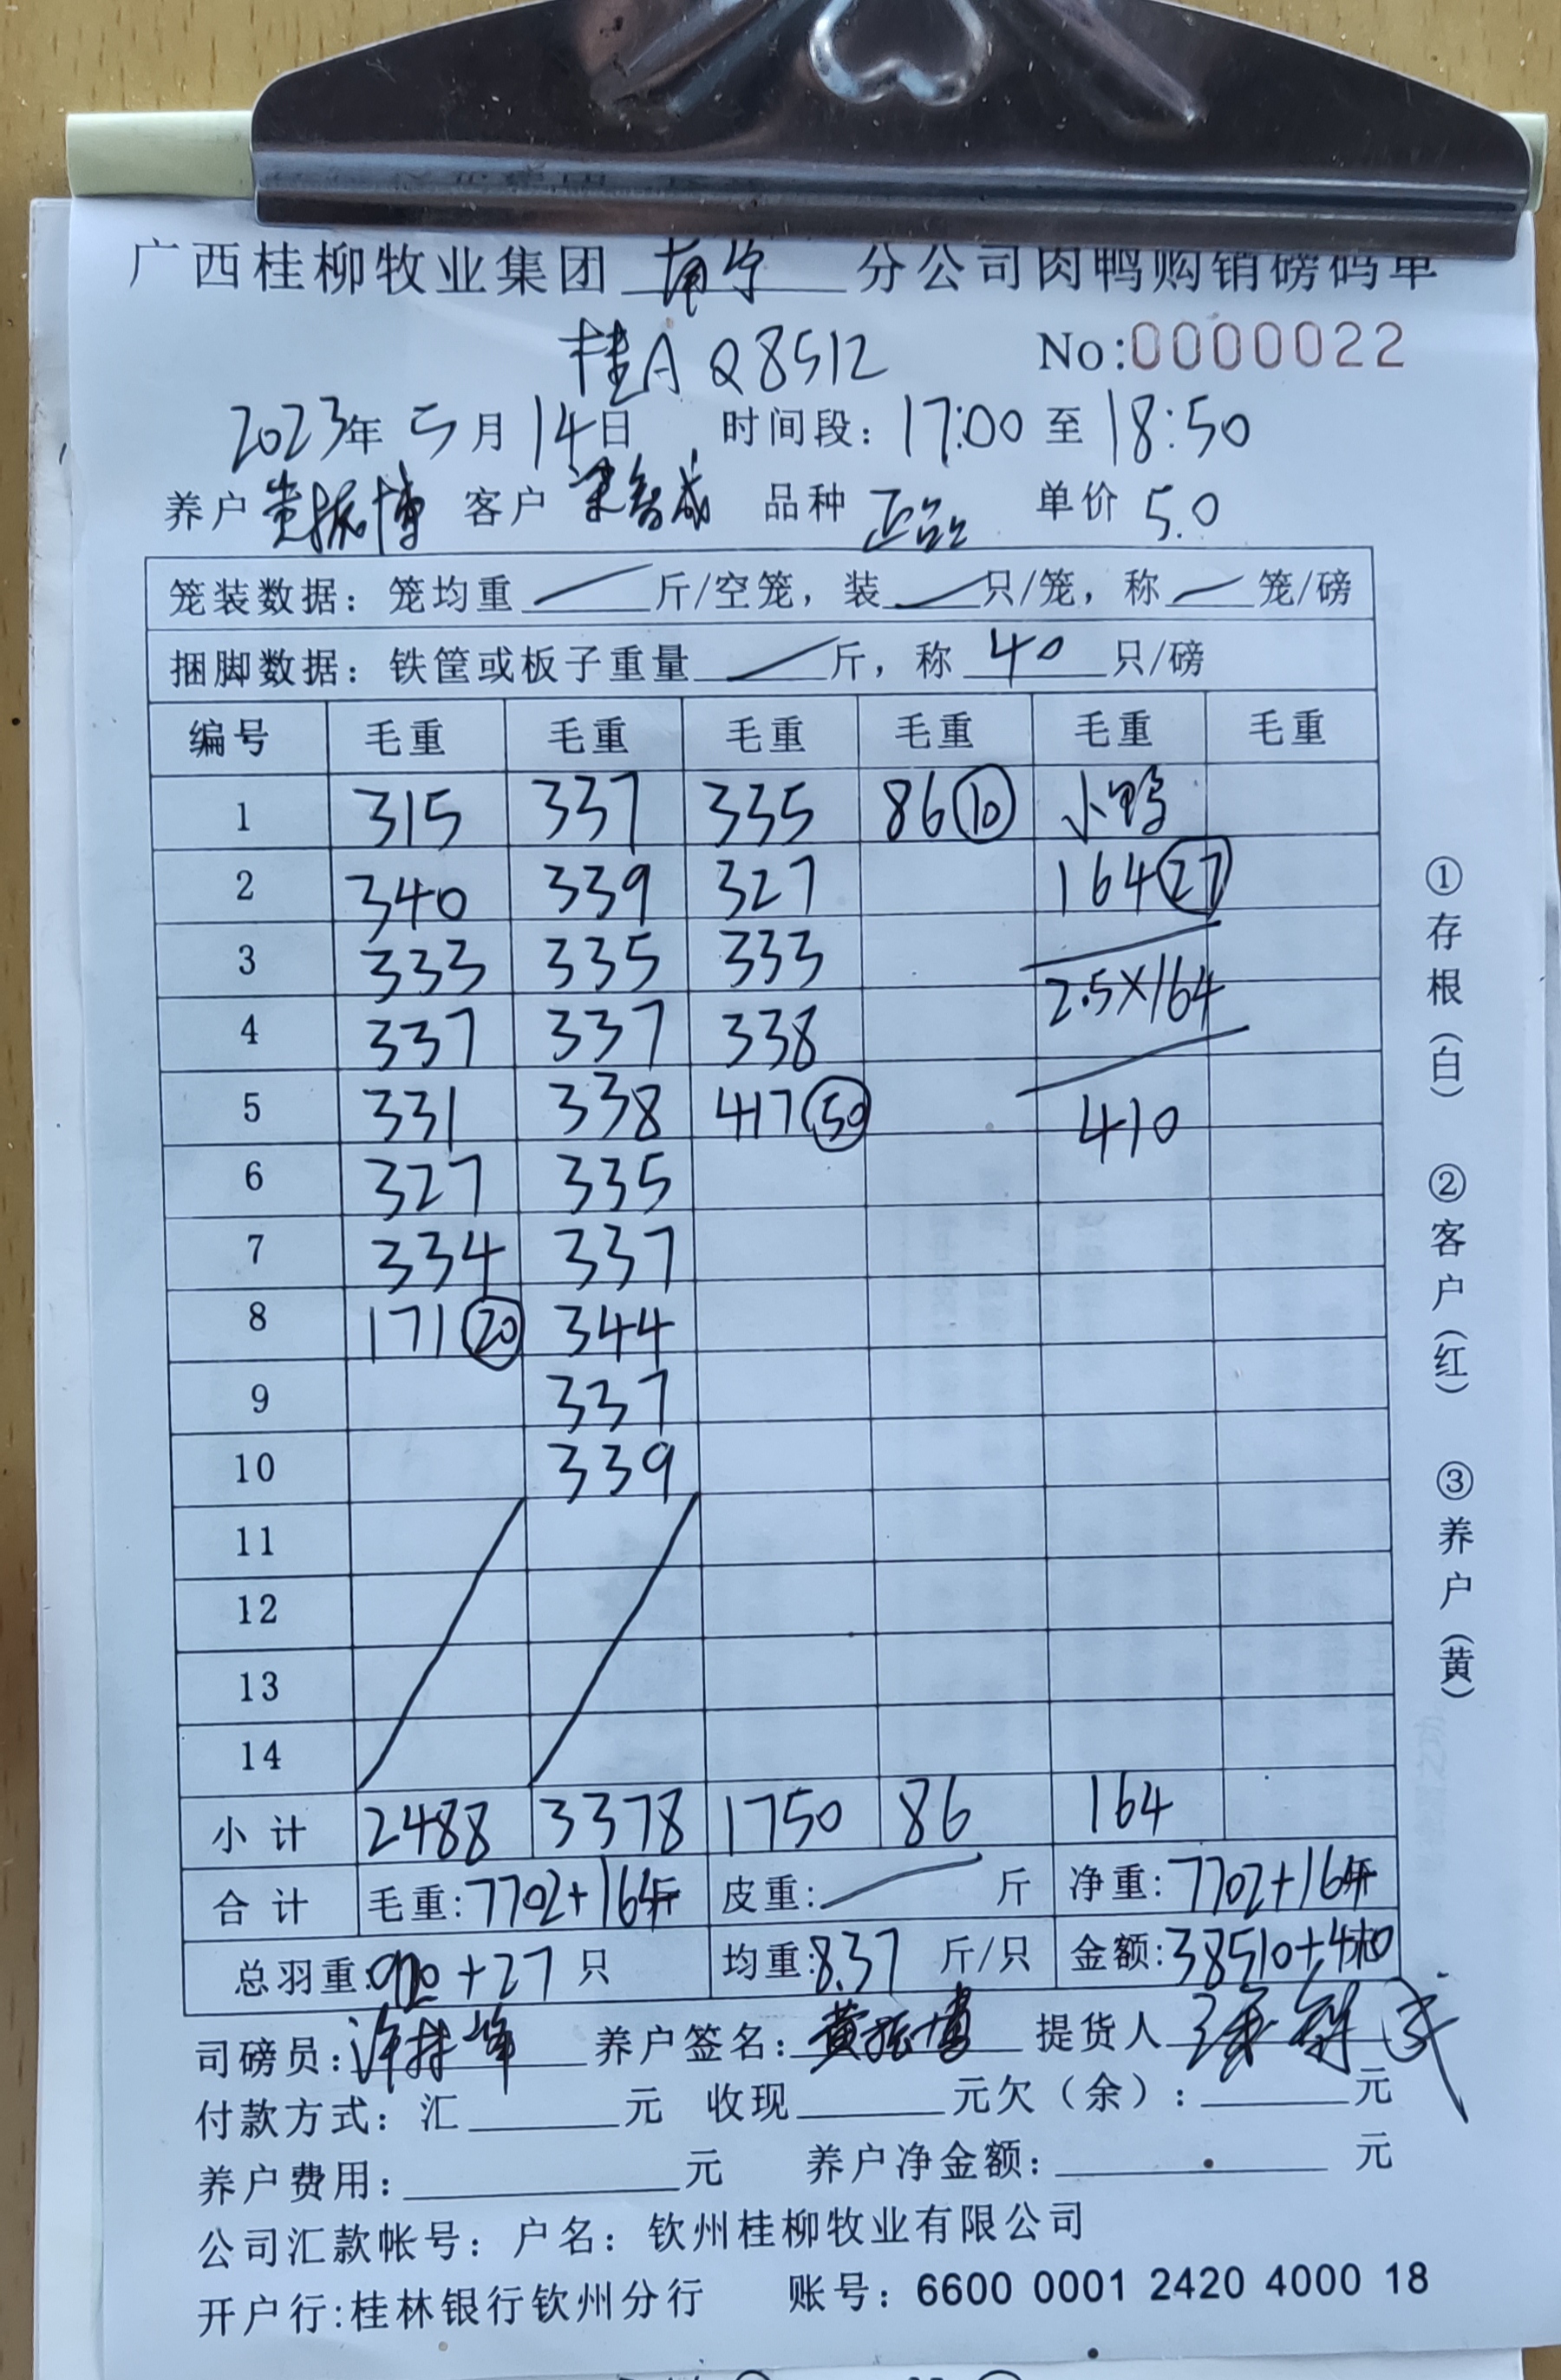 广西桂柳牧业集团 南宁 分公司肉鸭购销磅码单
桂A Q8512 No:0000022
2023年 5月 14日 时间段: 17:00 至 18:50
养户 黄振博 客户 梁智成 品种 正品 单价 5.0
笼装数据: 笼均重 斤/空笼, 装 只/笼, 称 笼/磅
捆脚数据: 铁筐或板子重量 斤, 称 40 只/磅
编号 毛重 毛重 毛重 毛重 毛重 毛重
1 315 337 335 86⑩ 小鸭
2 340 339 327 164㉗
3 333 335 333
4 337 337 338 2.5×164
5 331 338 417㊿ 410
6 327 335
7 334 337
8 171⑳ 344
9 337
10 339
11
12
13
14
小计 2488 3378 1750 86 164
合计 毛重:7702+164斤 皮重: 斤 净重:7702+164斤
总羽重: 920+27 只 均重:8.37 斤/只 金额:38510+410
司磅员: 养户签名: 黄振博 提货人
付款方式: 汇 元 收现 元欠(余): 元
养户费用: 元 养户净金额: 元
公司汇款帐号: 户名: 钦州桂柳牧业有限公司
开户行:桂林银行钦州分行 账号: 6600 0001 2420 4000 18
①存根(白) ②客户(红) ③养户(黄)